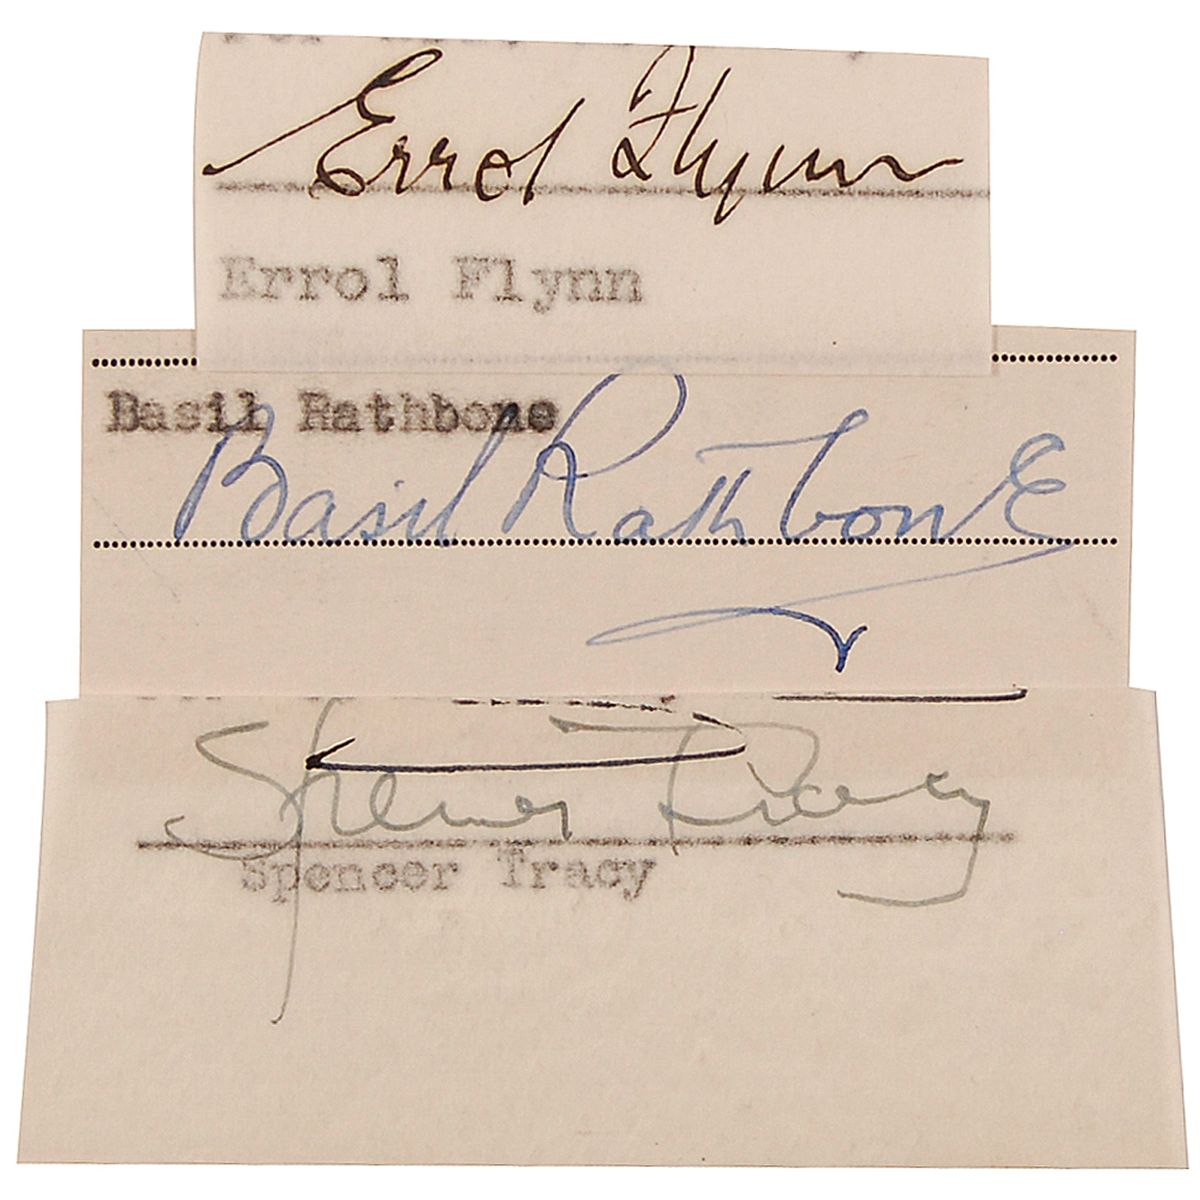 Errol Flynn
Errol Flynn
Basil Rathbone
Basil Rathbone
Spencer Tracy
Spencer Tracy